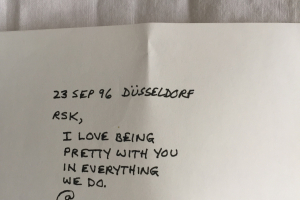 23 SEP 96 DÜSSELDORF
RSK,
I LOVE BEING
PRETTY WITH YOU
IN EVERYTHING
WE DO.
@